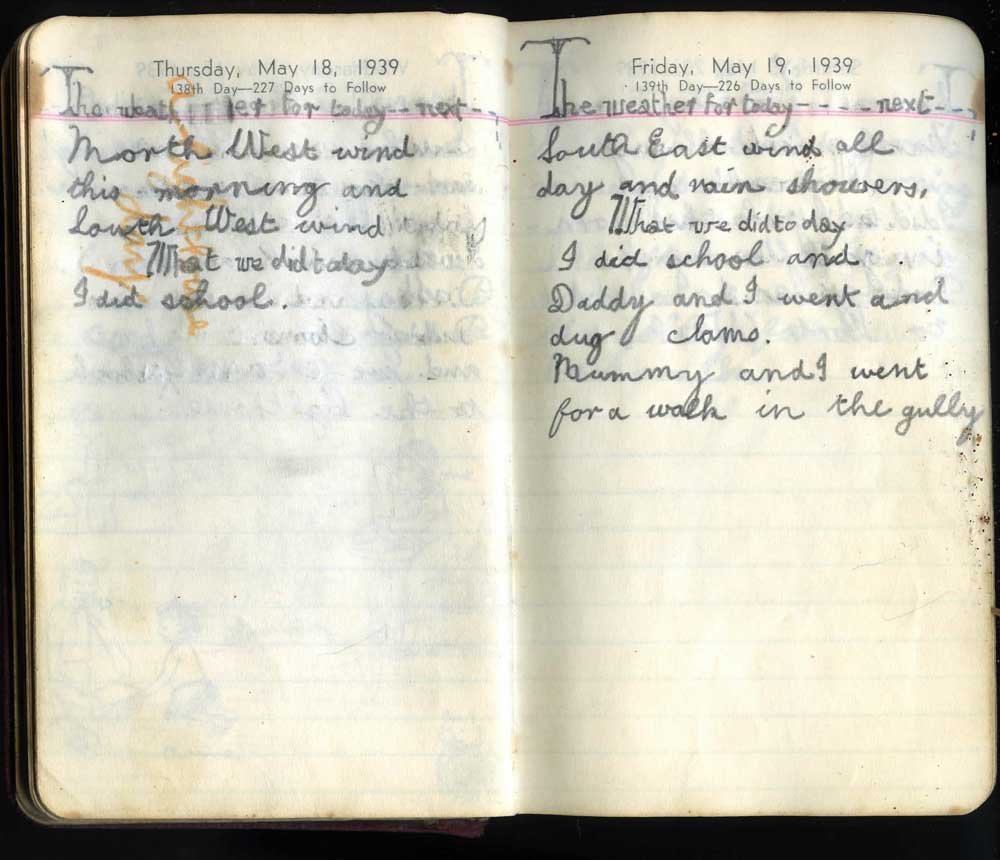 Thursday, May 18, 1939
138th Day—227 Days to Follow
The weather for today - - next -
North West wind
this morning and
South West wind
What we did today
I did school.
Friday, May 19, 1939
139th Day—226 Days to Follow
The weather for today - - - - next - -
South East wind all
day and rain showers,
What we did today
I did school and
Daddy and I went and
dug clams.
Mummy and I went
for a walk in the gully